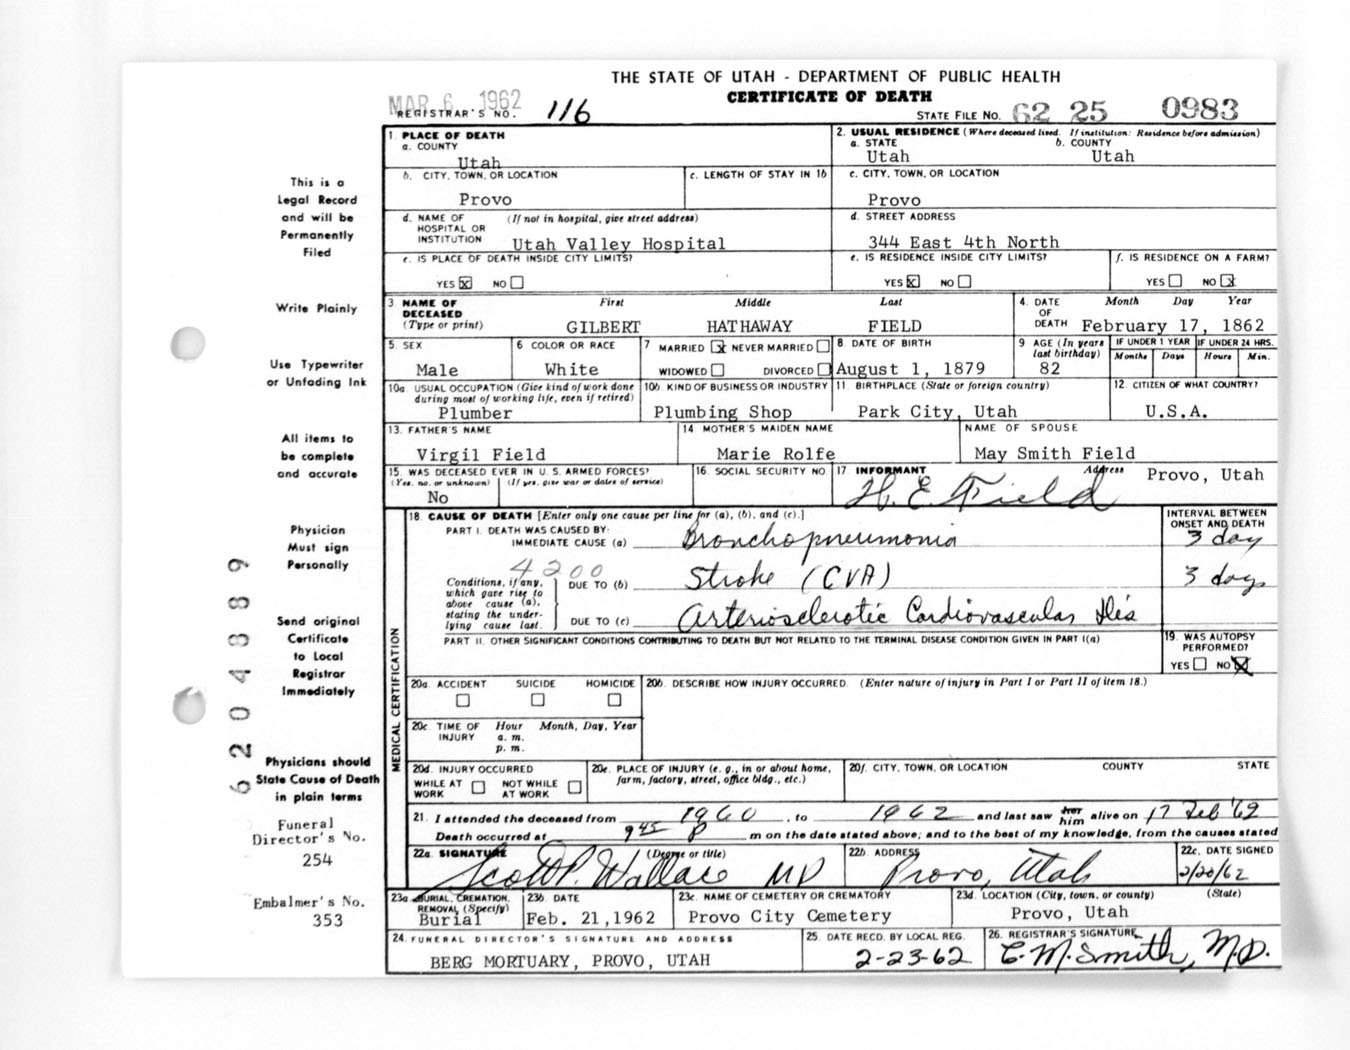 THE STATE OF UTAH - DEPARTMENT OF PUBLIC HEALTH
CERTIFICATE OF DEATH
MAR 6 1962
REGISTRAR'S NO. 116
STATE FILE NO. 62 25 0983
1. PLACE OF DEATH
a. COUNTY
Utah
2. USUAL RESIDENCE (Where deceased lived. If institution: Residence before admission)
a. STATE b. COUNTY
Utah Utah
b. CITY, TOWN, OR LOCATION
Provo
c. LENGTH OF STAY IN 1b
c. CITY, TOWN, OR LOCATION
Provo
d. NAME OF HOSPITAL OR INSTITUTION (If not in hospital, give street address)
Utah Valley Hospital
d. STREET ADDRESS
344 East 4th North
e. IS PLACE OF DEATH INSIDE CITY LIMITS?
YES X NO
e. IS RESIDENCE INSIDE CITY LIMITS?
YES X NO
f. IS RESIDENCE ON A FARM?
YES NO X
3 NAME OF DECEASED (Type or print) First Middle Last
GILBERT HATHAWAY FIELD
4. DATE OF DEATH Month Day Year
February 17, 1862
5. SEX
Male
6 COLOR OR RACE
White
7 MARRIED X NEVER MARRIED
WIDOWED DIVORCED
8. DATE OF BIRTH
August 1, 1879
9 AGE (In years last birthday)
82
IF UNDER 1 YEAR IF UNDER 24 HRS.
Months Days Hours Min.
10a USUAL OCCUPATION (Give kind of work done during most of working life, even if retired)
Plumber
10b. KIND OF BUSINESS OR INDUSTRY
Plumbing Shop
11 BIRTHPLACE (State or foreign country)
Park City, Utah
12. CITIZEN OF WHAT COUNTRY?
U.S.A.
13. FATHER'S NAME
Virgil Field
14 MOTHER'S MAIDEN NAME
Marie Rolfe
NAME OF SPOUSE
May Smith Field
15. WAS DECEASED EVER IN U. S. ARMED FORCES?
(Yes, no, or unknown) (If yes, give war or dates of service)
No
16. SOCIAL SECURITY NO.
17 INFORMANT Address
H. E. Field Provo, Utah
MEDICAL CERTIFICATION
18. CAUSE OF DEATH [Enter only one cause per line for (a), (b), and (c).]
INTERVAL BETWEEN ONSET AND DEATH
PART I. DEATH WAS CAUSED BY:
IMMEDIATE CAUSE (a) Bronchopneumonia 3 day
4200
Conditions, if any, which gave rise to above cause (a), stating the underlying cause last.
DUE TO (b) Stroke (CVA) 3 days
DUE TO (c) Arteriosclerotic Cardiovascular Dis
PART II. OTHER SIGNIFICANT CONDITIONS CONTRIBUTING TO DEATH BUT NOT RELATED TO THE TERMINAL DISEASE CONDITION GIVEN IN PART I(a)
19. WAS AUTOPSY PERFORMED?
YES NO X
20a. ACCIDENT SUICIDE HOMICIDE
20b. DESCRIBE HOW INJURY OCCURRED. (Enter nature of injury in Part I or Part II of item 18.)
20c. TIME OF INJURY Hour Month, Day, Year
a. m.
p. m.
20d. INJURY OCCURRED
WHILE AT WORK NOT WHILE AT WORK
20e. PLACE OF INJURY (e. g., in or about home, farm, factory, street, office bldg., etc.)
20f. CITY, TOWN, OR LOCATION COUNTY STATE
21. I attended the deceased from 1960, to 1962 and last saw her him alive on 17 Feb '62
Death occurred at 9 45 P m on the date stated above; and to the best of my knowledge, from the causes stated
22a. SIGNATURE (Degree or title)
Scott P. Wallace MD
22b. ADDRESS
Provo, Utah
22c. DATE SIGNED
2/20/62
23a BURIAL, CREMATION, REMOVAL (Specify)
Burial
23b. DATE
Feb. 21,1962
23c. NAME OF CEMETERY OR CREMATORY
Provo City Cemetery
23d. LOCATION (City, town, or county) (State)
Provo, Utah
24. FUNERAL DIRECTOR'S SIGNATURE AND ADDRESS
BERG MORTUARY, PROVO, UTAH
25. DATE RECD. BY LOCAL REG.
2-23-62
26. REGISTRAR'S SIGNATURE
C. M. Smith, M.D.
This is a
Legal Record
and will be
Permanently
Filed
Write Plainly
Use Typewriter
or Unfading Ink
All items to
be complete
and accurate
Physician
Must sign
Personally
Send original
Certificate
to Local
Registrar
Immediately
Physicians should
State Cause of Death
in plain terms
Funeral
Director's No.
254
Embalmer's No.
353
6 2 0 4 3 8 9